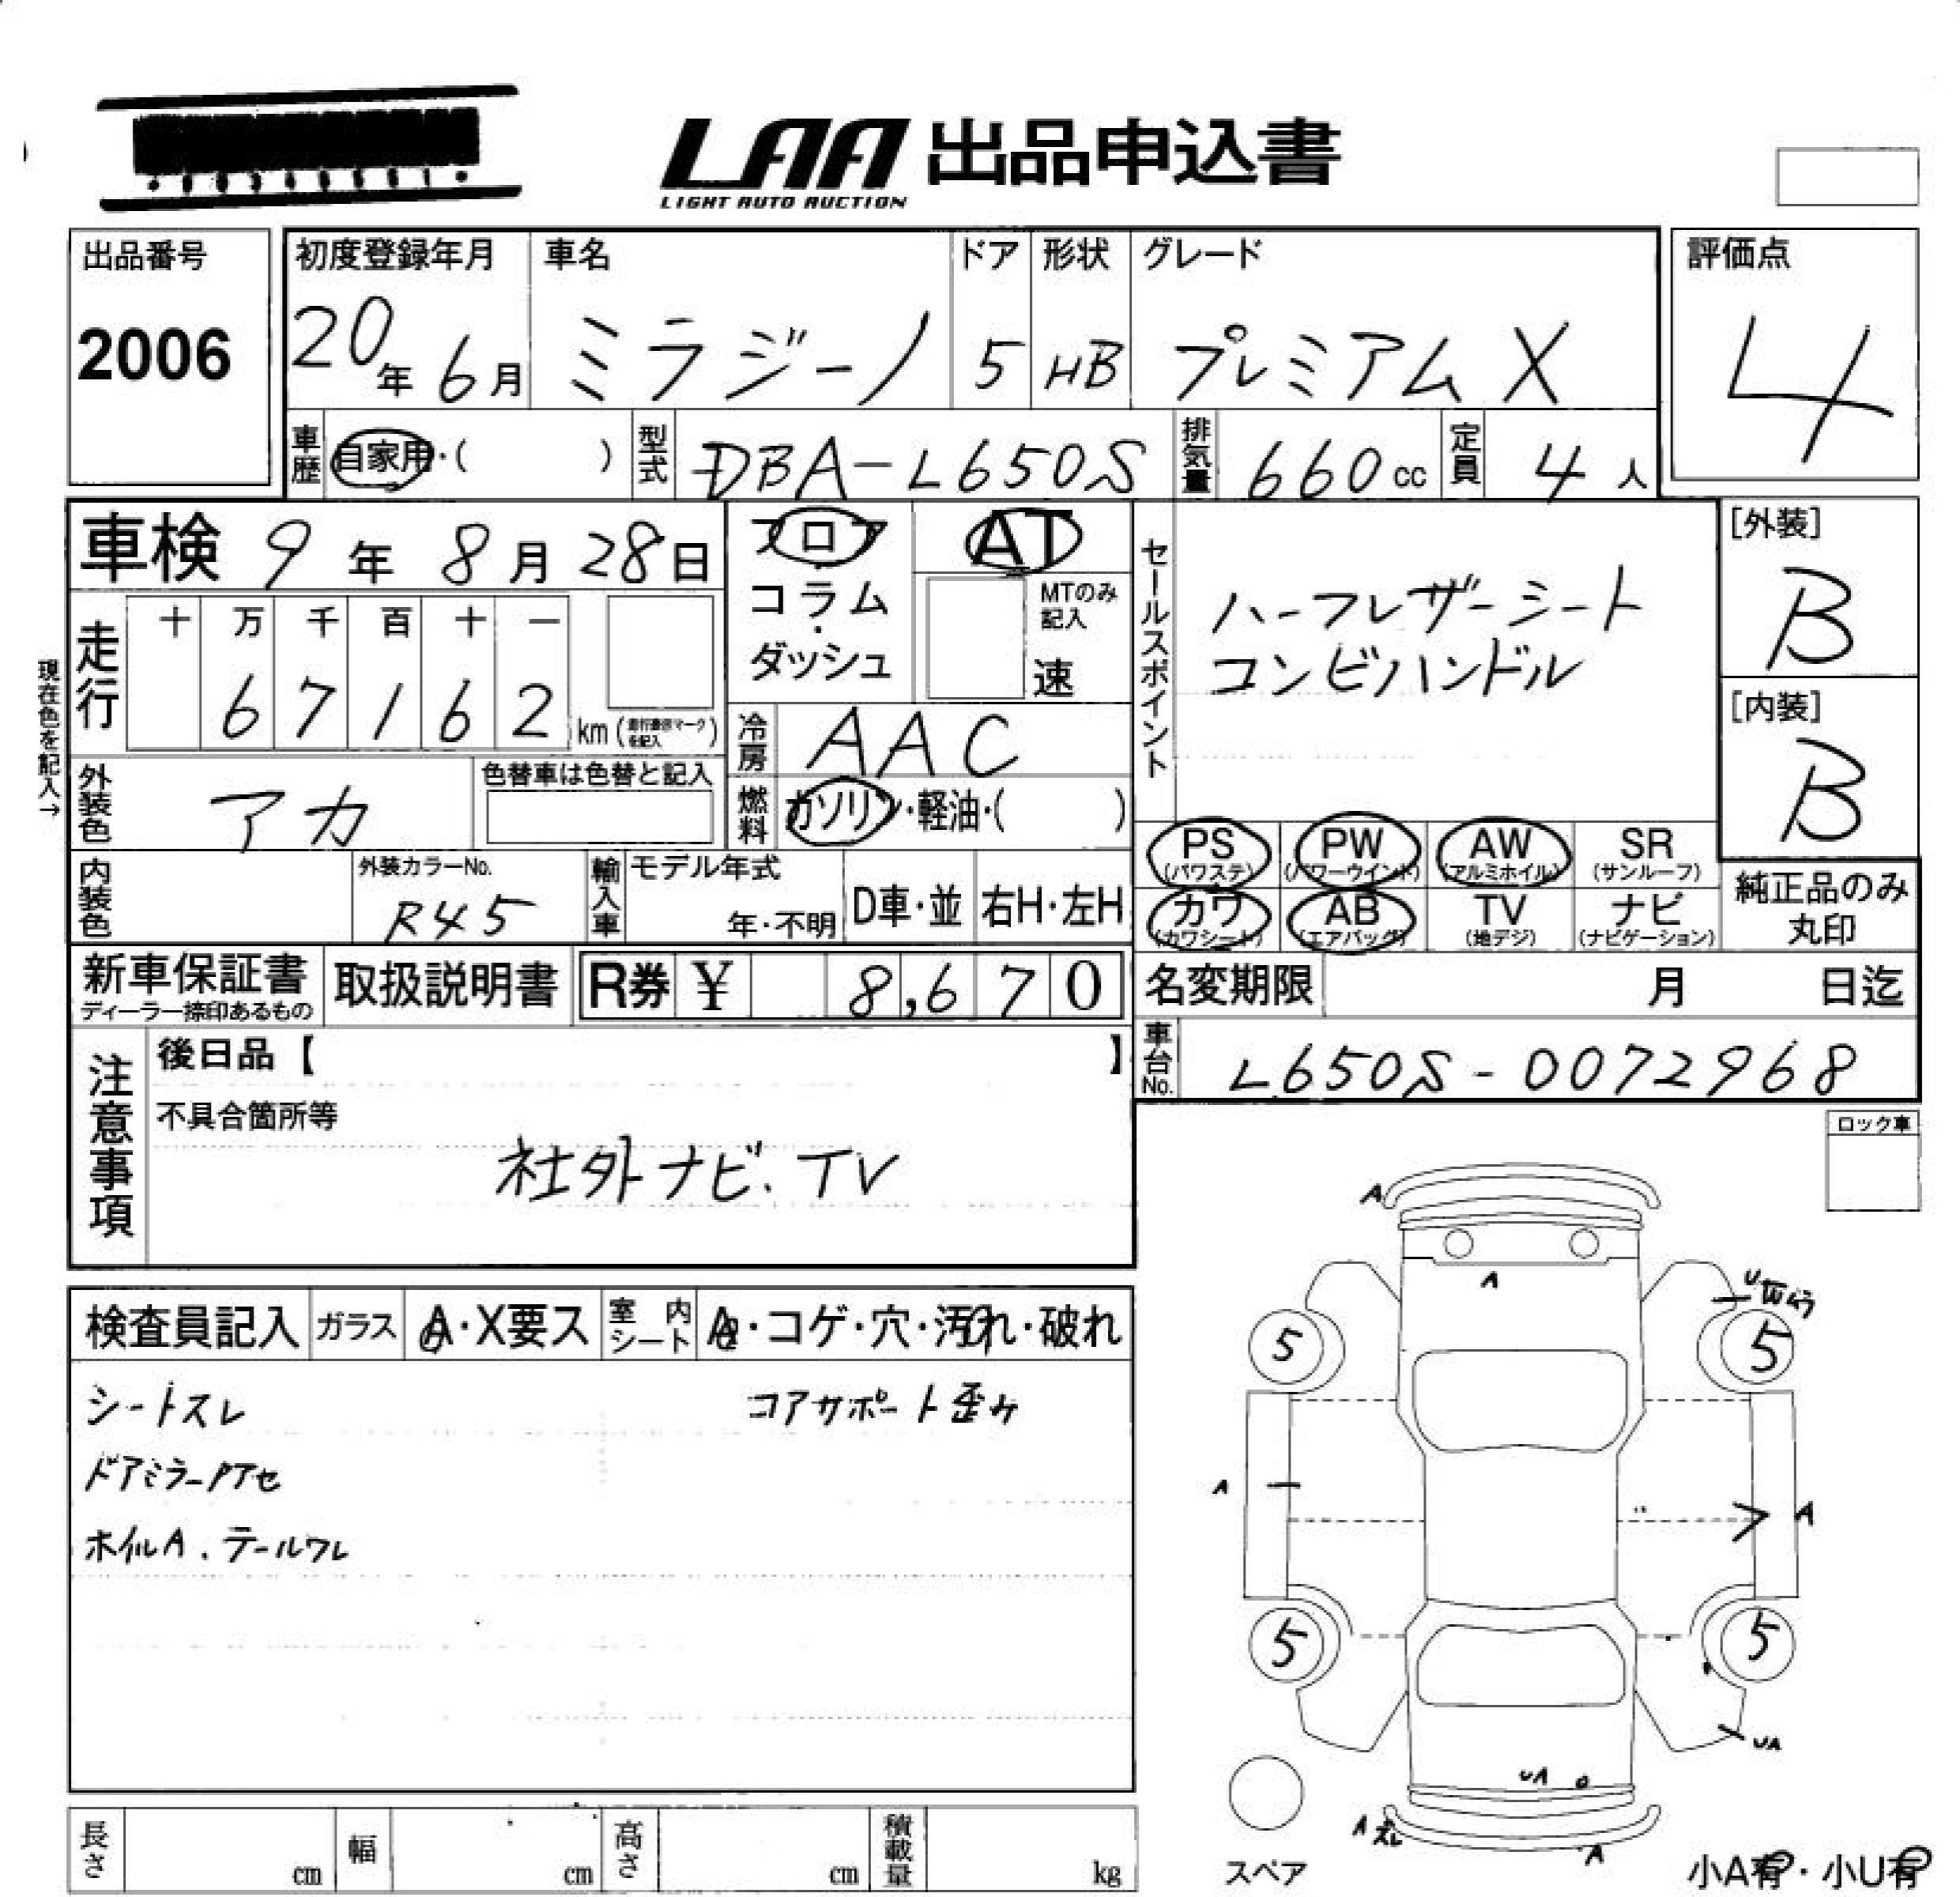 LAA 出品申込書
LIGHT AUTO AUCTION
出品番号
2006
初度登録年月 車名 ドア 形状 グレード
20年 6月 ミラジーノ 5 HB プレミアムX
評価点
4
車歴 自家用・( ) 型式 DBA-L650S 排気量 660cc 定員 4人
車検 9年 8月 28日
フロア AT
コラム・
ダッシュ
MTのみ
記入
速
現在色を記入→
走行 十 万 千 百 十 一
6 7 1 6 2 km (走行表示マークを記入)
冷房 AAC
外装色 アカ 色替車は色替と記入
燃料 ガソリン・軽油・( )
セールスポイント
ハーフレザーシート
コンビハンドル
[外装]
B
[内装]
B
内装色 外装カラーNo. R45
輸入車 モデル年式 年・不明 D車・並 右H・左H
PS PW AW SR
(パワステ) (パワーウインド) (アルミホイル) (サンルーフ)
カワ AB TV ナビ
(カワシート) (エアバッグ) (地デジ) (ナビゲーション)
純正品のみ
丸印
新車保証書
ディーラー捺印あるもの
取扱説明書 R券 ¥ 8,670
名変期限 月 日迄
車台No. L650S-0072968
注意事項
後日品【 】
不具合箇所等
社外ナビ.TV
ロック車
検査員記入 ガラス A・X要ス 室内シート A・コゲ・穴・汚れ・破れ
シートスレ コアサポート歪ケ
ドアミラーアセ
ホイルA.テールワレ
A
A
U
5 5
A A
5 5
UA
UA
A ズレ
A
スペア
小A有・小U有
長さ cm 幅 cm 高さ cm 積載量 kg